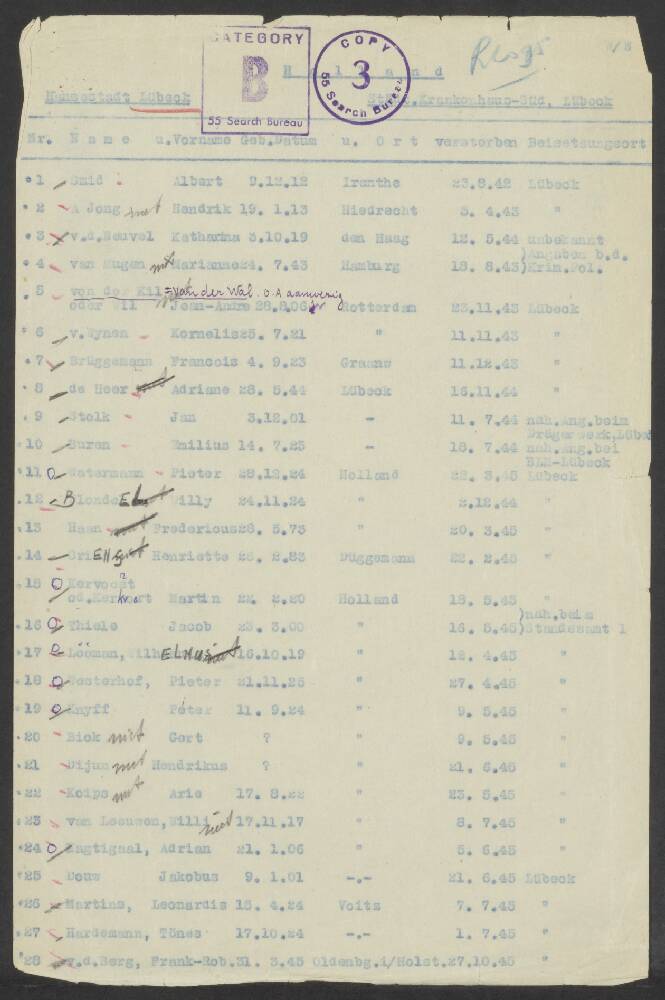 CATEGORY
B
55 Search Bureau
COPY
3
55 Search Bureau
Holland
Hansestadt Lübeck Städt. Krankenhaus-Süd, Lübeck
Nr. Name u. Vorname Geb.Datum u. Ort verstorben Beisetzungsort
1 Smid Albert 9.12.12 23.8.42 Lübeck
2 A Jong niet Hendrik 19. 1.13 3. 4.43 "
3 v.d.Heuvel Katharina 3.10.19 den Haag 12. 5.44 unbekannt
)Angaben b.d.
4 van Mugen niet Marianne 24. 7.43 Hamburg 18. 8.43)Krim.Pol.
5 von der = van der Wal. O.A aanwezig
oder Jean-Andre 28.8.06 Rotterdam 23.11.43 Lübeck
6 v.Wynen Kornelis 25. 7.21 " 11.11.43 "
7 Brüggemann Francois 4. 9.23 11.12.43 "
8 de Heer Adriane 28. 5.44 Lübeck 16.11.44 "
9 Stolk Jan 3.12.01 - 11. 7.44 nah.Ang.beim
Drägerwerk,Lübeck
10 Buren Emilius 14. 7.23 - 18. 7.44 nah.Ang.bei
Lübeck
11 Watermann - Pieter 28.12.24 Holland 22. 3.45 Lübeck
12 Blonde Willy 24.11.24 " 2.12.44 "
13 Haan Fredericous 28. 5.73 " 20. 3.45 "
14 Henriette 2.83 Düggemann 22. 2.45 "
15
Martin 2.20 Holland 18. 5.45 "
)nah.beim
16 Thiele Jacob 23. 3.00 " 16. 5.45)Standesamt 1
17 Looman, Wilh ELMUS 16.10.19 " 12. 4.45 "
18 Oosterhof, Pieter 21.11.25 " 27. 4.45 "
19 Knyff Peter 11. 9.24 " 9. 5.45 "
20 Blok niet Gert ? " 9. 5.45 "
21 Dijun niet Hendrikus ? " 21. 6.45 "
22 Koips niet Arie 17. 8.22 " 23. 5.45 "
23 van Leeuwen, Willi niet 17.11.17 " 8. 7.45 "
24 Adrian 21. 1.06 " 5. 6.45 "
25 Douw Jakobus 9. 1.01 -.- 21. 6.45 Lübeck
26 Martins, Leonardis 18. 4.24 Voitz 7. 7.45 "
27 Hardemann, Tönes 17.10.24 -.- 1. 7.45 "
28 v.d.Berg, Frank-Rob. 31. 3.45 Oldenbg.i/Holst. 27.10.45 "